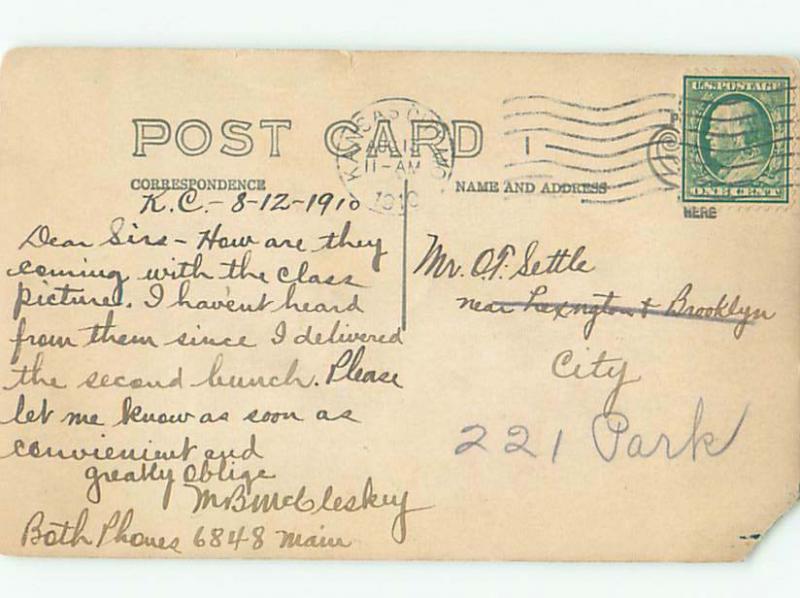 POST CARD
KANSAS CITY, MO
11-AM
1910
1
U.S. POSTAGE
ONE CENT
HERE
CORRESPONDENCE
NAME AND ADDRESS
K.C. - 8-12-1910
Dear Sirs - How are they
coming with the class
pictures. I havent heard
from them since I delivered
the second bunch. Please
let me know as soon as
convienient and
greatly oblige
M B McCleskey
Both Phones 6848 Main
Mr. O.T. Settle
near Lexngton & Brooklyn
City
221 Park